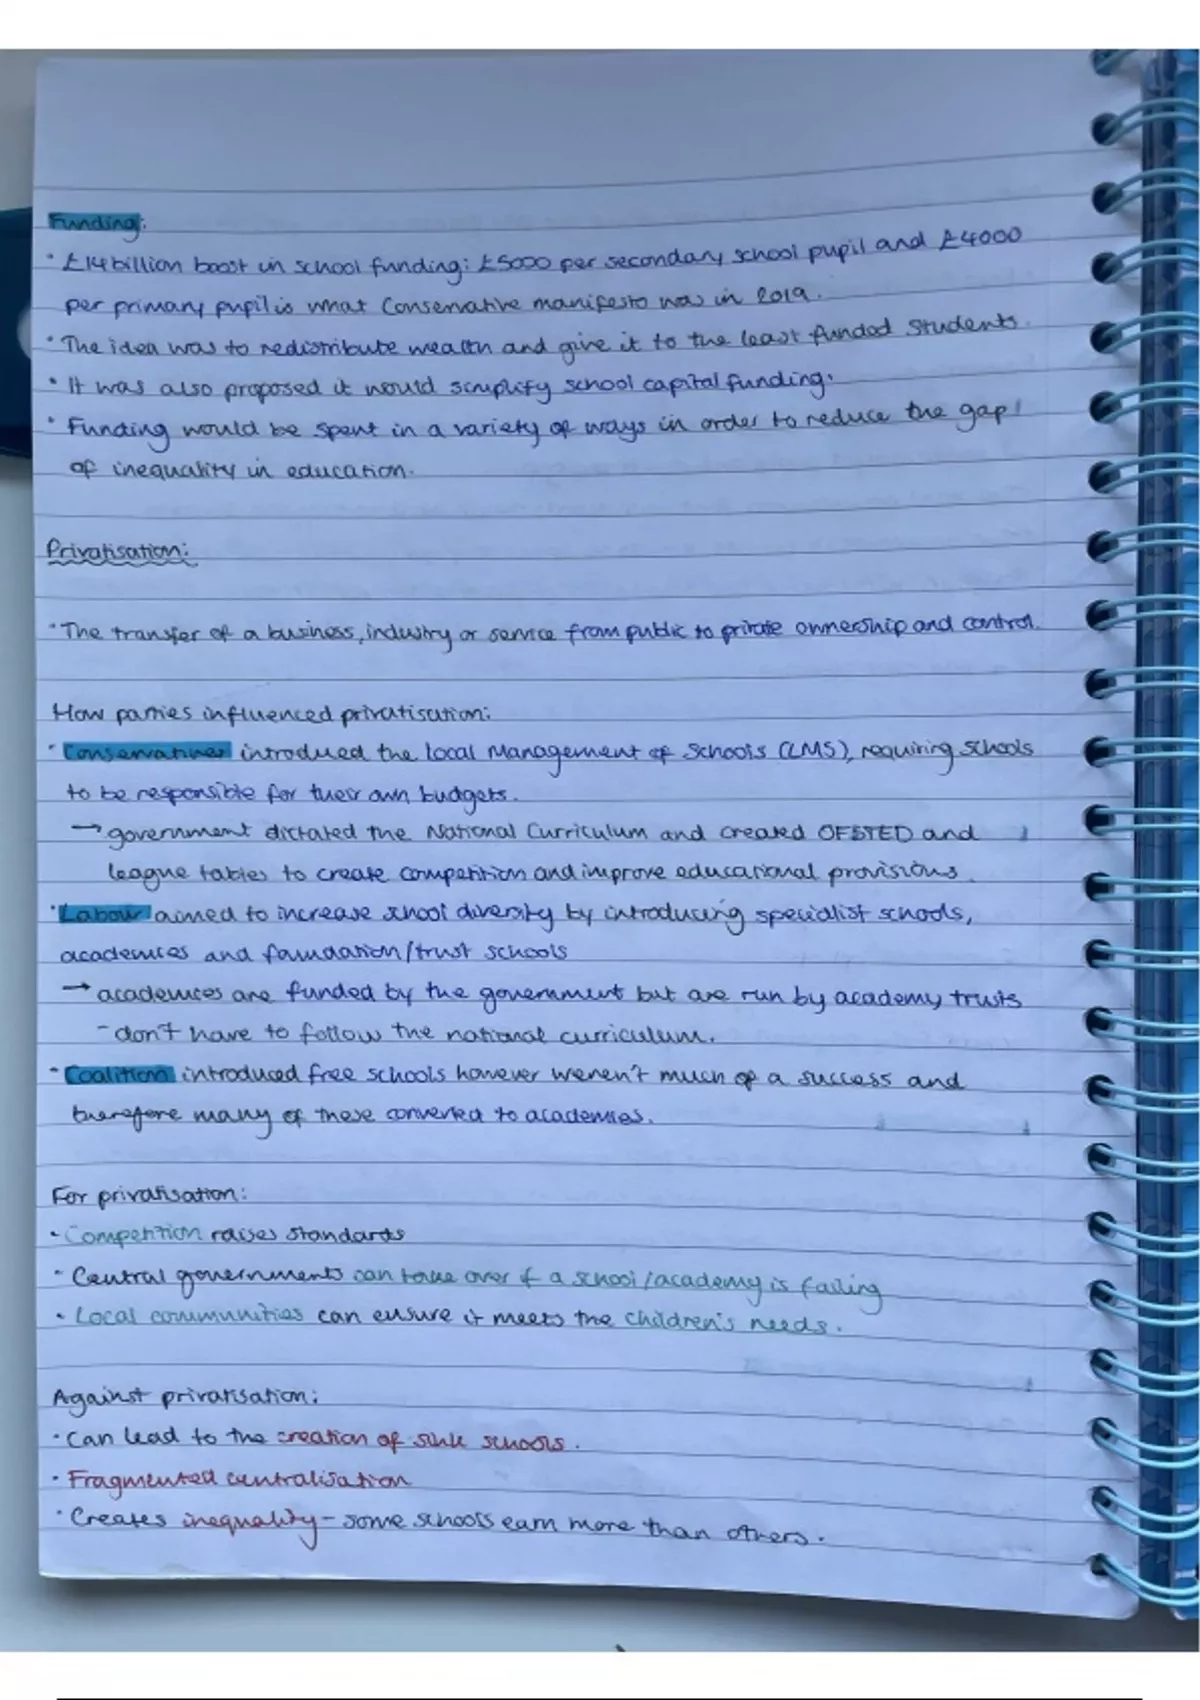 Funding:
• £14billion boost in school funding: £5000 per secondary school pupil and £4000
per primary pupil is what Conservative manifesto was in 2019.
• The idea was to redistribute wealth and give it to the least funded students.
• It was also proposed it would simplify school capital funding.
• Funding would be spent in a variety of ways in order to reduce the gap
of inequality in education.
Privatisation:
• The transfer of a business, industry or service from public to private ownership and control.
How parties influenced privatisation:
• Conservatives introduced the local Management of Schools (LMS), requiring schools
to be responsible for their own budgets.
→ government dictated the National Curriculum and created OFSTED and
league tables to create competition and improve educational provisions.
• Labour aimed to increase school diversity by introducing specialist schools,
academies and foundation/trust schools
→ academies are funded by the government but are run by academy trusts
- don't have to follow the national curriculum.
• Coalition introduced free schools however weren't much of a success and
therefore many of these converted to academies.
For privatisation:
• Competition raises standards
• Central governments can take over if a school/academy is failing
• Local communities can ensure it meets the children's needs.
Against privatisation:
• Can lead to the creation of sink schools.
• Fragmented centralisation
• Creates inequality - some schools earn more than others.